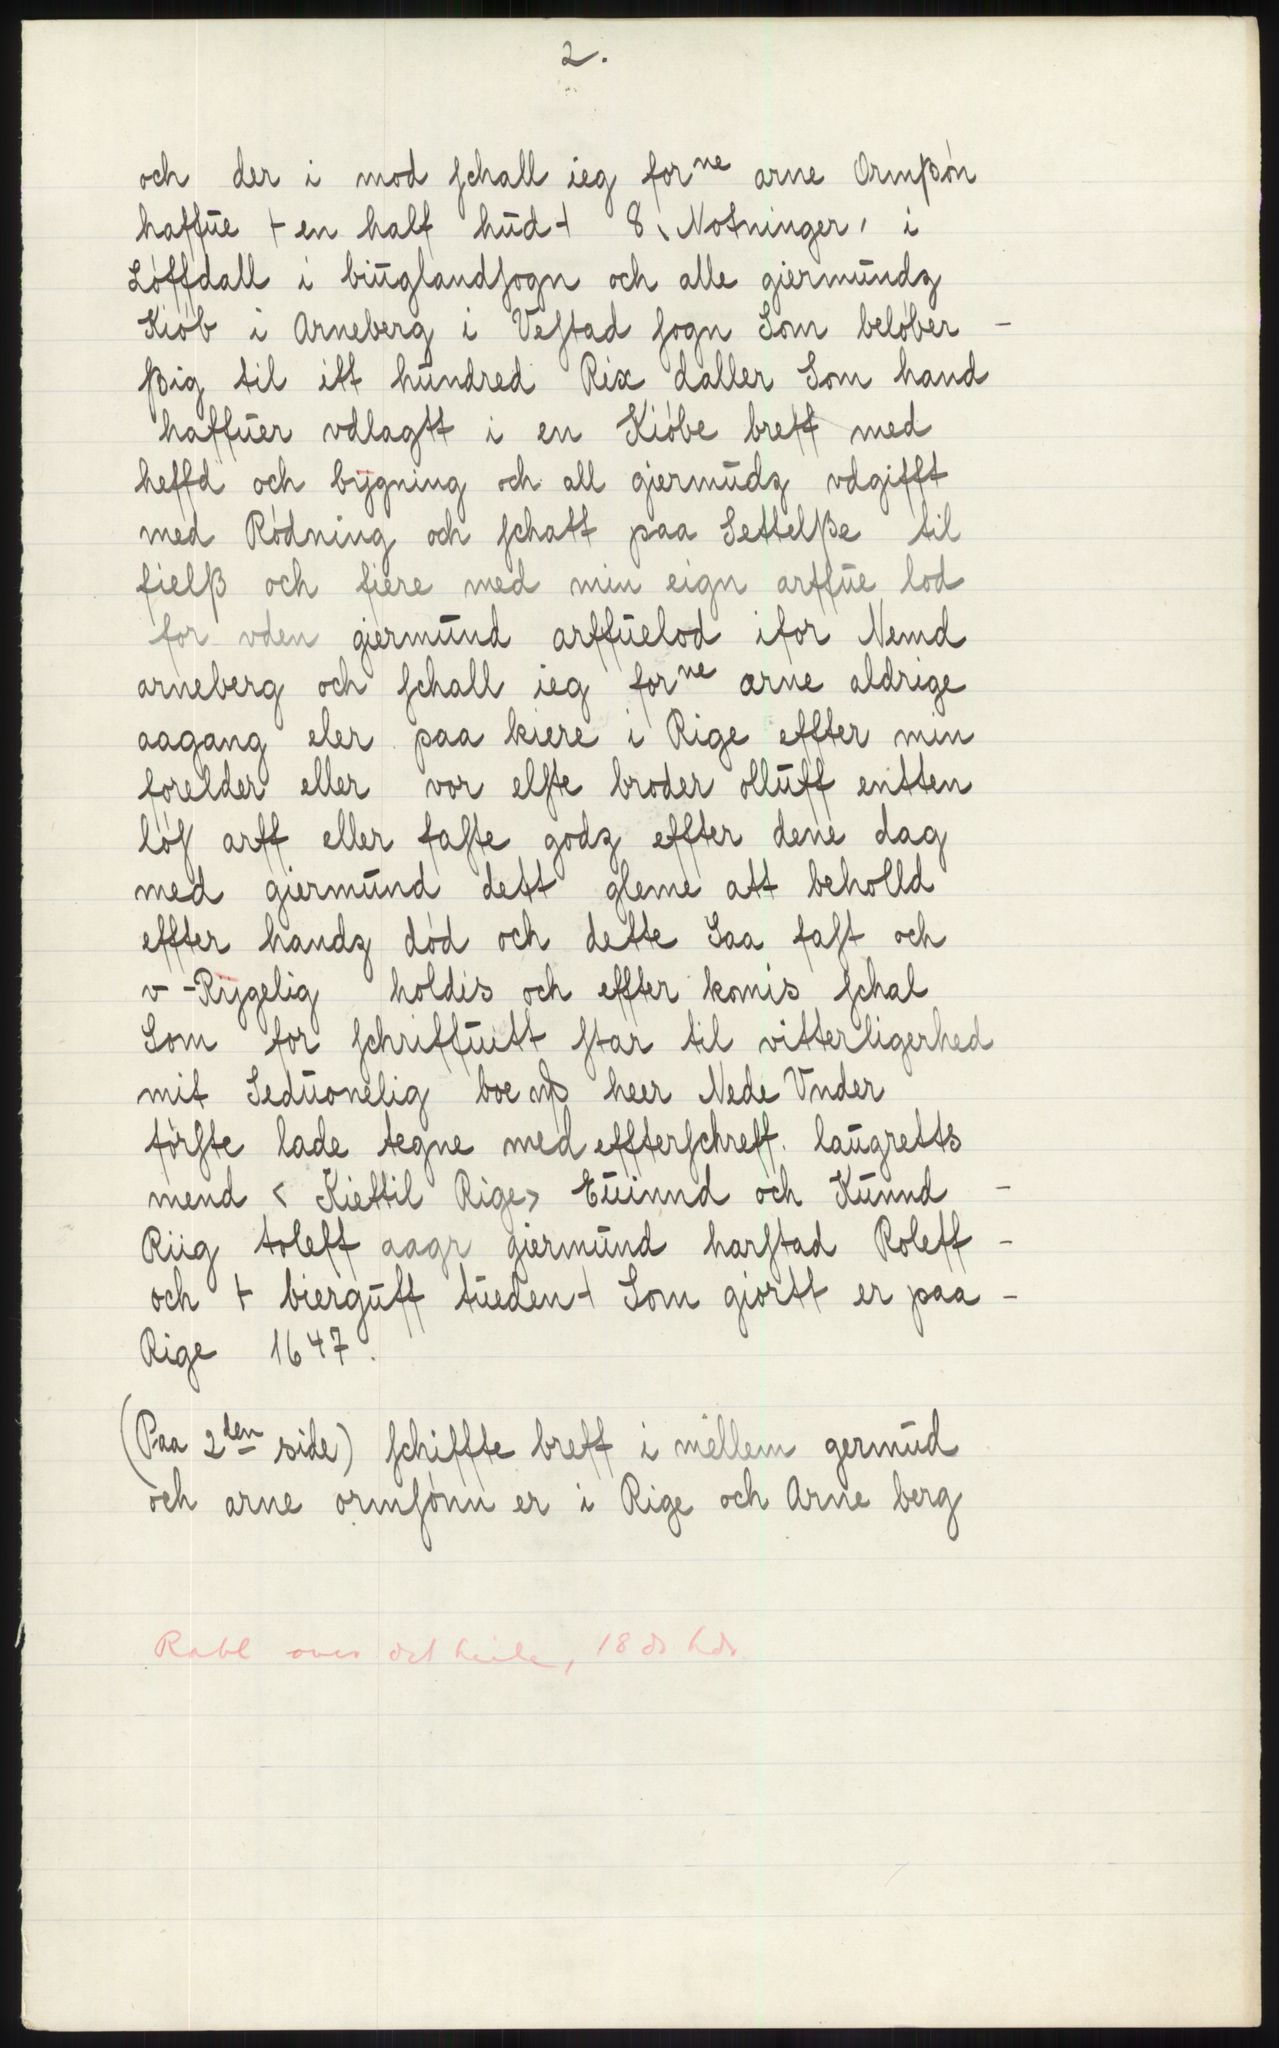 2.
och der i mod schall ieg forne arne Ormßøn
haffue + en half hud + 8 Notninger, i
Løffdall i biuglandsogn och alle giermundz
Kiøb i Arneberg i Vestad sogn Som beløber -
ßig til itt hundred Rix daller Som hand
haffuer vdlagtt i en Kiøbe breff med
heffd och bÿgning och all giermudz vdgifft
med Rødning och schatt paa Settelße til
fielß och fiere med min eign arffue lod
for vden giermund arffuelod ifor Nemd
arneberg och schall ieg forne arne aldrige
aagang eler paa kiere i Rige effter min
forelder eller vor elste broder olluff entten
løs arff eller faste godz effter dene dag
med giermund dett gleme att beholld
effter handz død och dette Saa fast och
v-Rÿgelig holdis och effter komis schal
Som for schriffuitt star til vitterligerhed
mit Seduonelig boe heer Nede Vnder
første lade tegne med effterschreff. laugretts
mend < Kiettil Rige> Euinnd och Kunnd -
Riig toleff aagr giermund harstad Roleff -
och + bierguff tueden + Som giortt er paa -
Rige 1647.
(Paa 2den side) schiffte breff i mellem germud
och arne ormsønn er i Rige och Arne berg
Rabl over det heile, 18 ds hds.